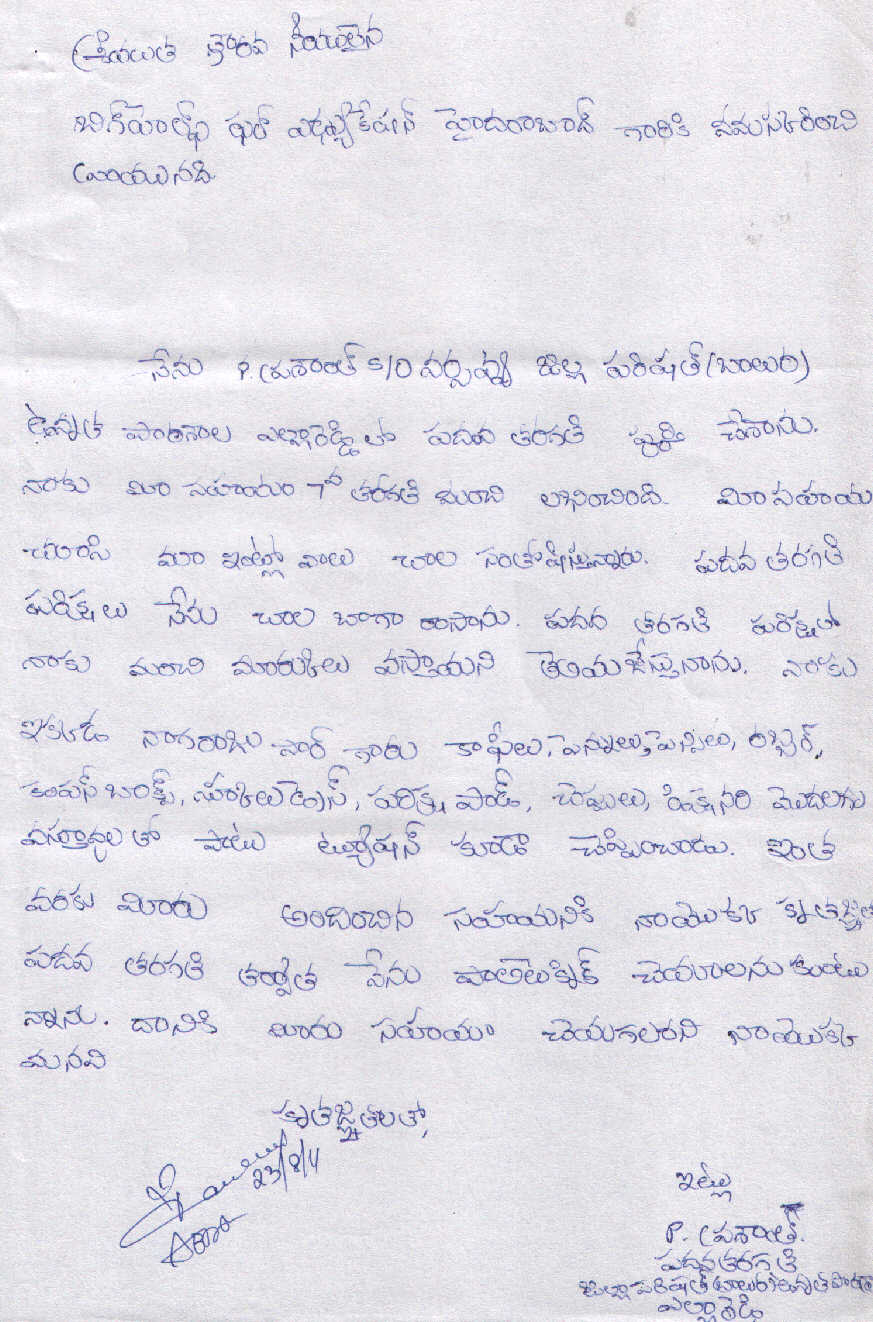 శ్రీయుత గౌరవ నీయులైన
బిగ్‌హెల్ప్ ఫర్ ఎడ్యుకేషన్ హైదరాబాద్ గారికి నమస్కరించి
వ్రాయునది.
నేను P. ప్రశాంత్ S/O నర్సవ్వ జిల్లా పరిషత్ (బాలుర)
ఉన్నత పాఠశాల ఎల్లారెడ్డి లో పదవ తరగతి పూర్తి చేశాను.
నాకు మీ సహాయం 7వ తరగతి నుంచి లభించింది. మీ సహాయ
చూసి మా ఇంట్లో వాలు చాల సంతోషిస్తున్నారు. పదవ తరగతి
పరిక్షలు నేను చాల బాగా రాసాను. పదవ తరగతి పరిక్షలో
నాకు మంచి మార్కులు వస్తాయని తెలియజేస్తునాను. నాకు
ఇక్కడ నాగరాజు సార్ గారు కాపీలు, పెన్నులు, పెన్సిలు, రబ్బర్,
కంపస్ బాక్స్, స్కూలు డ్రెస్, పరిక్ష ప్యాడ్, చెప్పులు, డిక్షనరి మొదలగు
వస్తువుల తో పాటు ట్యూషన్ కూడా చెప్పించాడు. ఇంత
వరకు మీరు అందించిన సహాయనికి నాయొక్క కృతజ్ఞత
పదవ తరగతి తర్వాత నేను పాలిటెక్నిక్ చేయాలను కుంటు
న్నాను. దానికి మీరు సహాయం చేయగలరని నాయొక్క
మనవి
కృతజ్ఞతలతో,
23/8/11
ఇట్లు
P. ప్రశాంత్.
పదవతరగతి
జిల్లాపరిషత్ బాలుర ఉన్నత పాఠశా
ఎల్లారెడ్డి